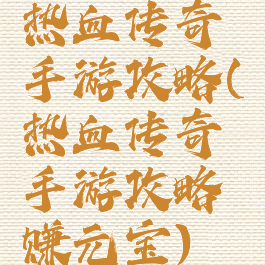 热血传奇
手游攻略(
热血传奇
手游攻略
赚元宝)